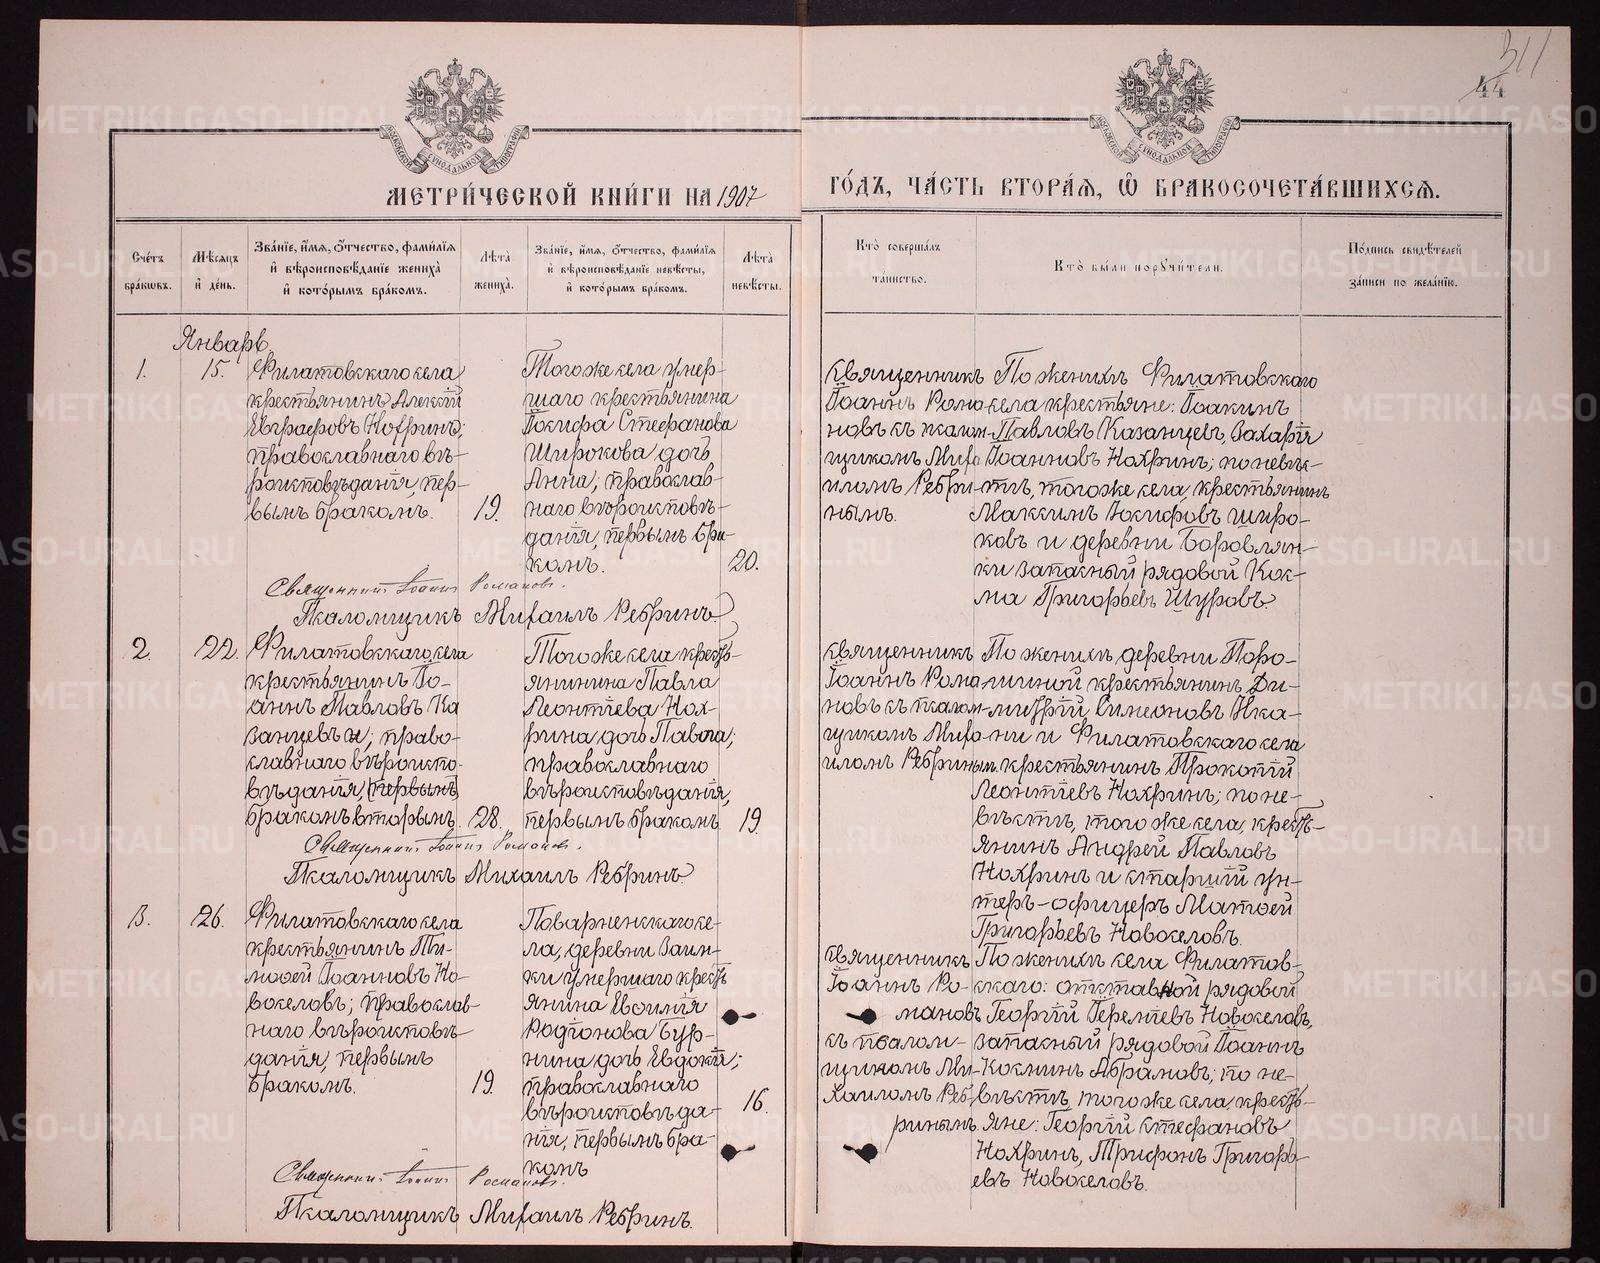 311
44
МЕТРИ́ЧЕСКОЙ КНИ́ГИ НА 1907
ГО́ДЪ, ЧА́СТЬ ВТОРА́Я, Ѽ БРАКОСОЧЕТА́ВШИХСЯ.
Сче́тъ
бра́кωвъ.
Мѣ́сяцъ
и҆ де́нь.
Зва́нїе, и҆́мя, ѻ҆́тчество, фами́лїя
и҆ вѣроисповѣ́данїе жениха̀
и҆ кото́рымъ бра́комъ.
Лѣ́та
жениха̀.
Зва́нїе, и҆́мя, ѻ҆́тчество, фами́лїя
и҆ вѣроисповѣ́данїе невѣ́сты,
и҆ кото́рымъ бра́комъ.
Лѣ́та
невѣ́сты.
Кто̀ соверша́лъ
та́инство.
Кто̀ бы́ли порꙋчи́тели.
По́дпись свидѣ́телей
за́писи по жела́нїю.
Январь
1.
15.
Филатовскаго села
крестьянинъ Алексій
Евграфовъ Нохринъ;
православнаго вѣ-
роисповѣданія, пер-
вымъ бракомъ.
19.
Того же села умер-
шаго крестьянина
Іосифа Стефанова
Широкова дочь
Анна; православ-
наго вѣроисповѣ-
данія, первымъ бра-
комъ.
20.
Священникъ
Іоаннъ Рома-
новъ съ псалом-
щикомъ Миха-
иломъ Ребри-
нымъ.
По женихѣ Филатовскаго
села крестьяне: Іоакимъ
Павловъ Казанцевъ, Захарія
Іоанновъ Нохринъ; по невѣс-
тѣ, того же села, крестьянинъ
Максимъ Іосифовъ Широ-
ковъ и деревни Боровлян-
ки запасный рядовой Кос-
ма Григорьевъ Шуровъ.
Священникъ Іоаннъ Романовъ.
Псаломщикъ Михаилъ Ребринъ.
2.
22.
Филатовскаго села
крестьянинъ Іо-
аннъ Павловъ Ка
занцевъ; право-
славнаго вѣроиспо-
вѣданія, (первымъ)
бракомъ вторымъ
28.
Того же села кресть-
янинина Павла
Леонтіева Нох-
рина дочь Павла;
православнаго
вѣроисповѣданія,
первымъ бракомъ
19.
Священникъ
Іоаннъ Рома
новъ съ псалом-
щикомъ Миха-
иломъ Ребринымъ.
По женихѣ деревни Поро-
шиной крестьянинъ Ди-
митрій Симеоновъ Ика-
ни и Филатовскаго села
крестьянинъ Прокопій
Леонтіевъ Нохринъ; по не-
вѣстѣ, того же села, кресть-
янинъ Андрей Павловъ
Нохринъ и старшій ун-
теръ-офицеръ Матѳей
Григорьевъ Новоселовъ.
Священникъ Іоаннъ Романовъ.
Псаломщикъ Михаилъ Ребринъ.
3.
26.
Филатовскаго села
крестьянинъ Ти-
моѳей Іоанновъ Но-
воселовъ; православ-
наго вѣроисповѣ-
данія, первымъ
бракомъ.
19.
Поварненскаго се-
ла, деревни Заим-
ки умершаго кресть
янина
Родіонова Бур-
нина дочь Евдокія;
православнаго
вѣроисповѣда-
нія, первымъ бра-
комъ
16.
Священникъ
Іоаннъ Ро-
мановъ
съ псалом-
щикомъ Ми-
хаиломъ Реб
ринымъ.
По женихѣ села Филатов-
скаго: отставной рядовой
Георгій Новоселовъ,
запасный рядовой Іоаннъ
Косминъ Абрамовъ; по не-
вѣстѣ, того же села, кресть-
яне: Георгій Стефановъ
Нохринъ, Трифонъ Григорь-
евъ Новоселовъ.
Священникъ Іоаннъ Романовъ.
Псаломщикъ Михаилъ Ребринъ.
METRIKI.GASO-URAL.RU